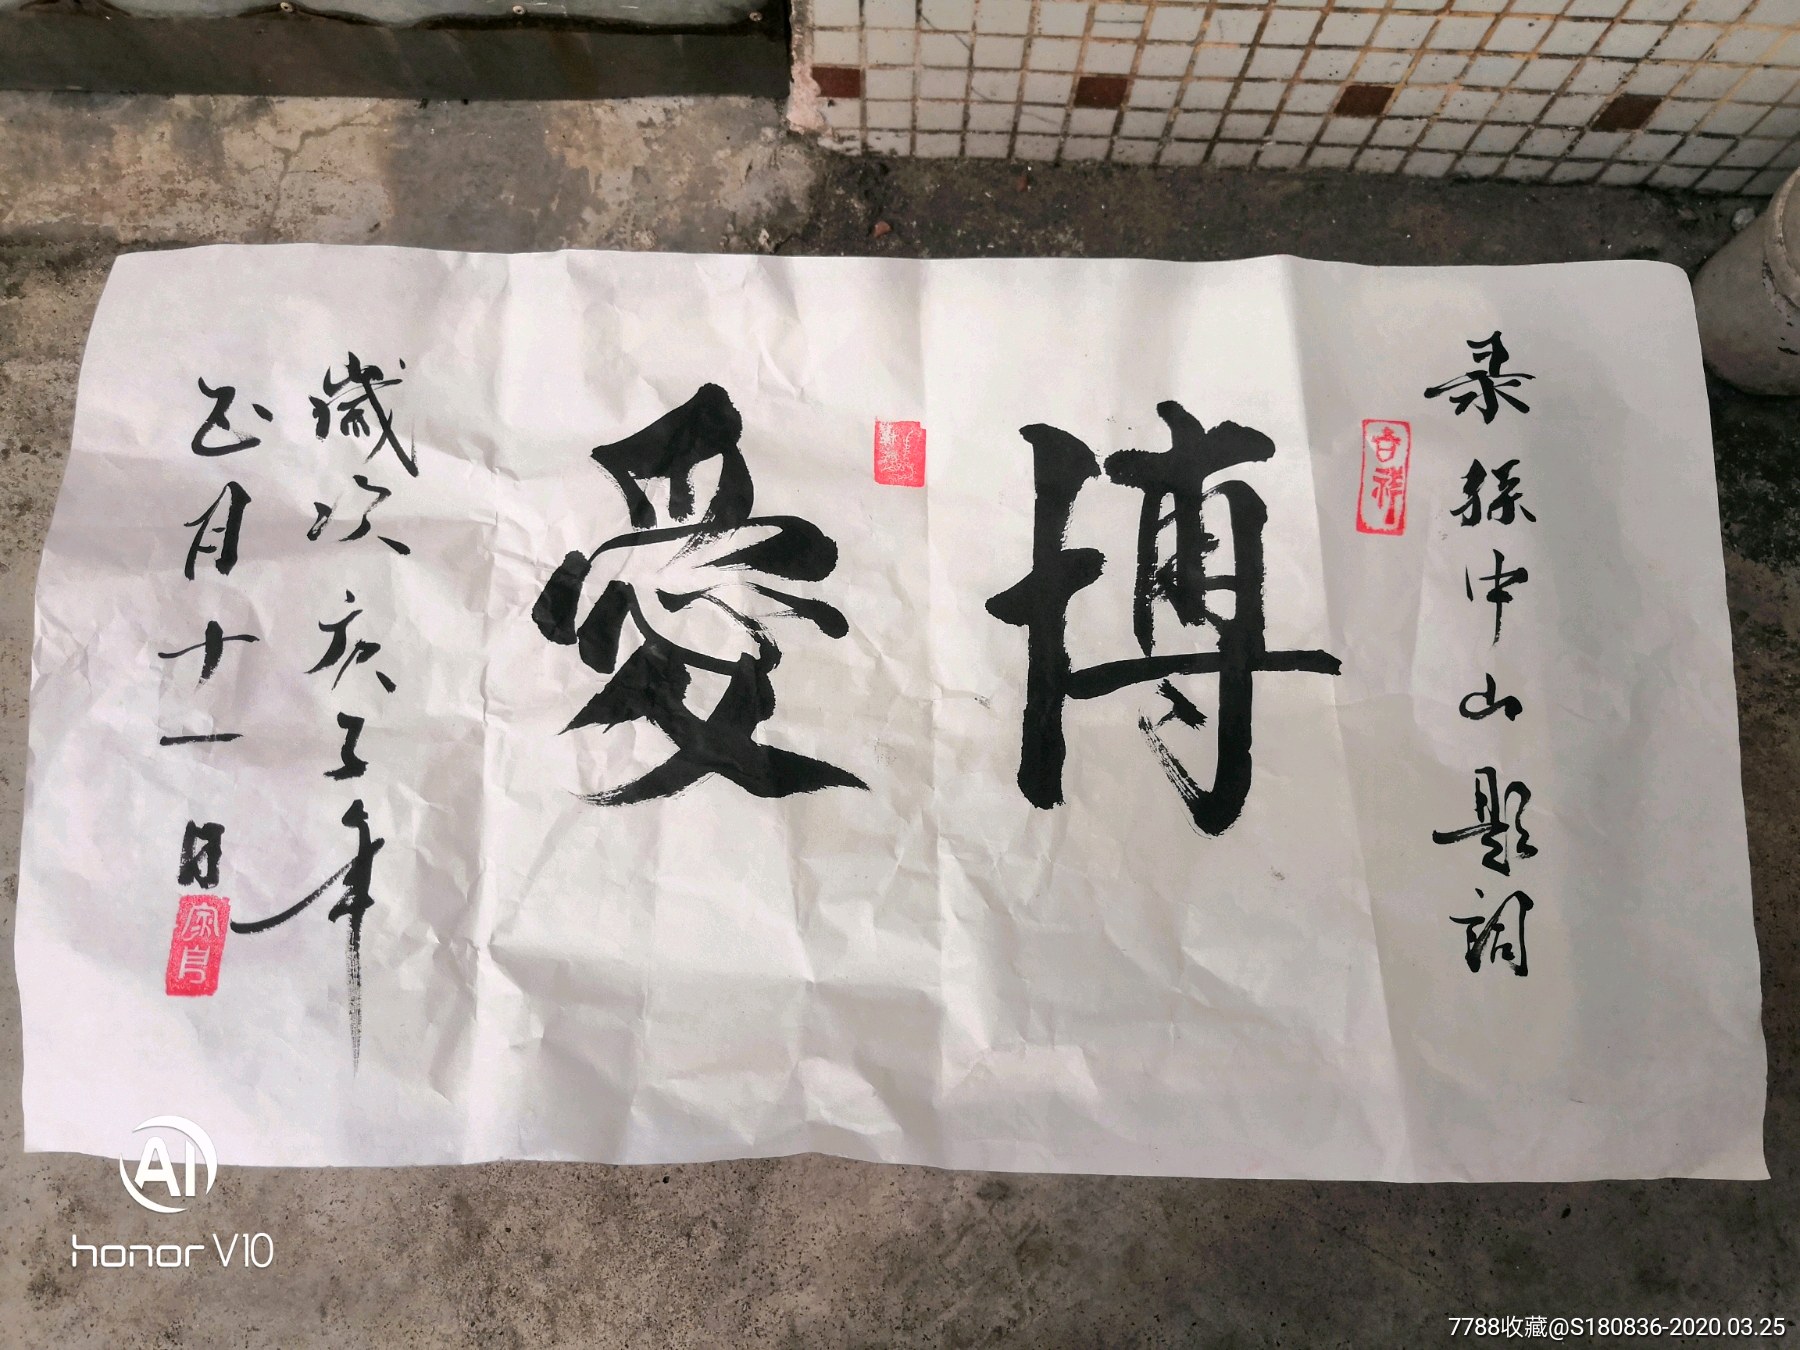 录孙中山题词
吉祥
博愛
歲次庚子年
正月十一日
AI
honor V10
7788收藏@S180836-2020.03.25